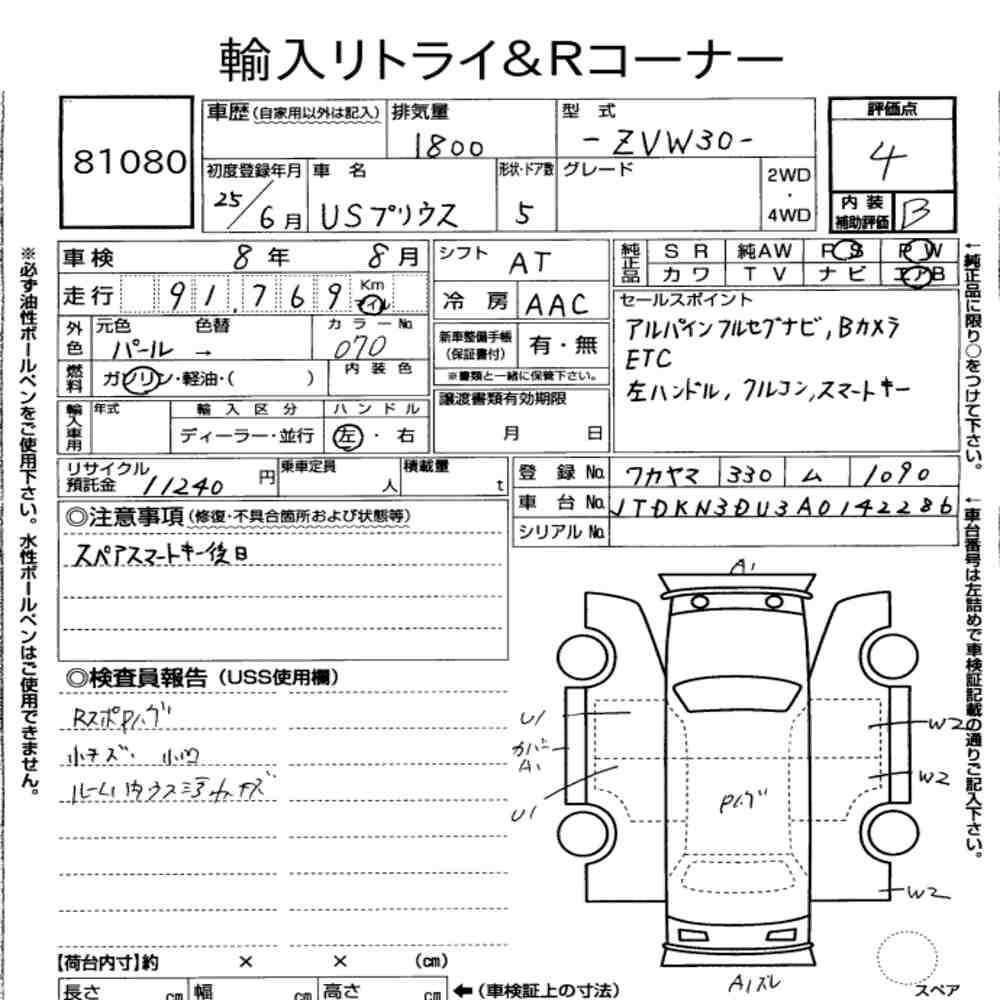 輸入リトライ&Rコーナー
81080
車歴(自家用以外は記入)
排気量
1800
型 式
-ZVW30-
評価点
4
初度登録年月
25/6月
車 名
USプリウス
形状・ドア数
5
グレード
2WD
・
4WD
内装補助評価
B
車検 8年 8月
走行 91,769 Km マイル
シフト AT
冷房 AAC
純正品 SR 純AW PS PW
カワ TV ナビ エアB
外色 元色 パール → 色替
カラーNo. 070
新車整備手帳(保証書付) 有・無
※書類と一緒に保管下さい。
燃料 ガソリン・軽油・( )
内装色
セールスポイント
アルパインフルセグナビ, Bカメラ
ETC
左ハンドル, クルコン, スマートキー
輸入車用 年式
輸入区分
ディーラー・並行
ハンドル
左・右
譲渡書類有効期限
月 日
リサイクル預託金 11240円
乗車定員 人
積載量 t
登録No. ワカヤマ 330 ム 1090
車台No. JTDKN3DU3A0142286
シリアルNo.
◎注意事項(修復・不具合箇所および状態等)
スペアスマートキー後日
◎検査員報告(USS使用欄)
小キズ・小凹
A1
U1
A1
U1
W2
W2
W2
A1ズレ
スペア
【荷台内寸】約 × × (cm)
長さ cm 幅 cm 高さ cm
←(車検証上の寸法)
※必ず油性ボールペンをご使用下さい。水性ボールペンはご使用できません。
←純正品に限り○をつけて下さい。
←車台番号は左詰めで車検証記載の通りご記入下さい。